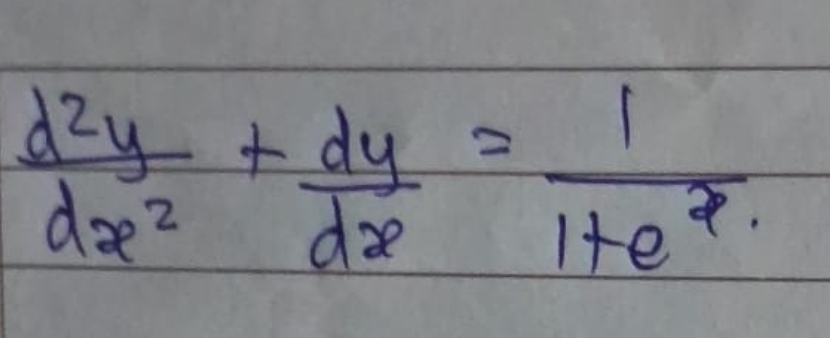 d²y/dx² + dy/dx = 1/(1+eˣ).